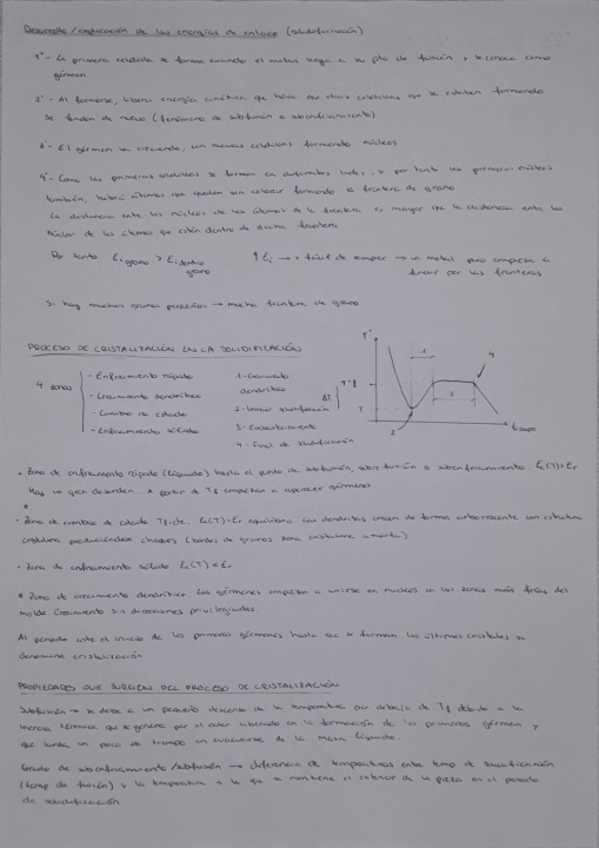 Desarrollo/explicación de las energías de enlace (solidificación)
1º- La primera celdilla se forma cuando el metal llega a su pto de fusión y se conoce como
gérmen
2º- Al formarse, libera energía cinética que hace que otras celdillas que se estaban formando
se fundan de nuevo (fenómeno de subfusión o subenfriamiento)
3º- El gérmen va creciendo, con nuevas celdillas formando núcleos
4º- Como las primeras celdillas se forman en diferentes lados, y por tanto los primeros núcleos
también, habrá átomos que queden sin colocar formando la frontera de grano
La distancia entre los núcleos de los átomos de la frontera es mayor que la distancia entre los
núcleos de los átomos que están dentro de dicha frontera
Por tanto Ei grano > Ei dentro grano ↑ Ei → + fácil de romper → un metal puro empieza a
fundir por las fronteras
Si hay muchos granos pequeños → mucha frontera de grano
PROCESO DE CRISTALIZACIÓN EN LA SOLIDIFICACIÓN
4 zonas
- Enfriamiento rápido
- Crecimiento dendrítico
- Cambio de estado
- Enfriamiento sólido
1- Crecimiento
dendrítico
2- Inicio solidificación
3- Embastecimiento
4- Final de solidificación
Tª
1
4
Tªf
ΔT
3
T
2
tiempo
• Zona de enfriamiento rápido (líquido) hasta el punto de subfusión, sobrefusión o subenfriamiento. Ec(T)>Er
Hay un gran desorden. A partir de Tf empiezan a aparecer gérmenes
*
- Zona de cambio de estado Tf cte. Ec(T)=Er equilibrio. Las dendritas crecen de forma arborescente con estructura
cristalina produciéndose choques (bordes de granos zona cristalina amorfa)
- Zona de enfriamiento sólido Ec(T) < Er
* Zona de crecimiento dendrítico. Los gérmenes empiezan a unirse en núcleos en las zonas más frías del
molde. Crecimiento sin direcciones privilegiadas.
Al periodo entre el inicio de los primeros gérmenes hasta que se forman los últimos cristales se
denomina cristalización
PROPIEDADES QUE SURGEN DEL PROCESO DE CRISTALIZACIÓN
Subfusión → se debe a un pequeño descenso de la temperatura por debajo de Tf debido a la
inercia térmica que se genera por el calor liberado en la formación de los primeros gérmen y
que tarda un poco de tiempo en evacuarse de la masa líquida.
Grado de subenfriamiento/subfusión → diferencia de temperaturas entre temp de solidificación
(temp de fusión) y la temperatura a la que se mantiene el exterior de la pieza en el periodo
de solidificación